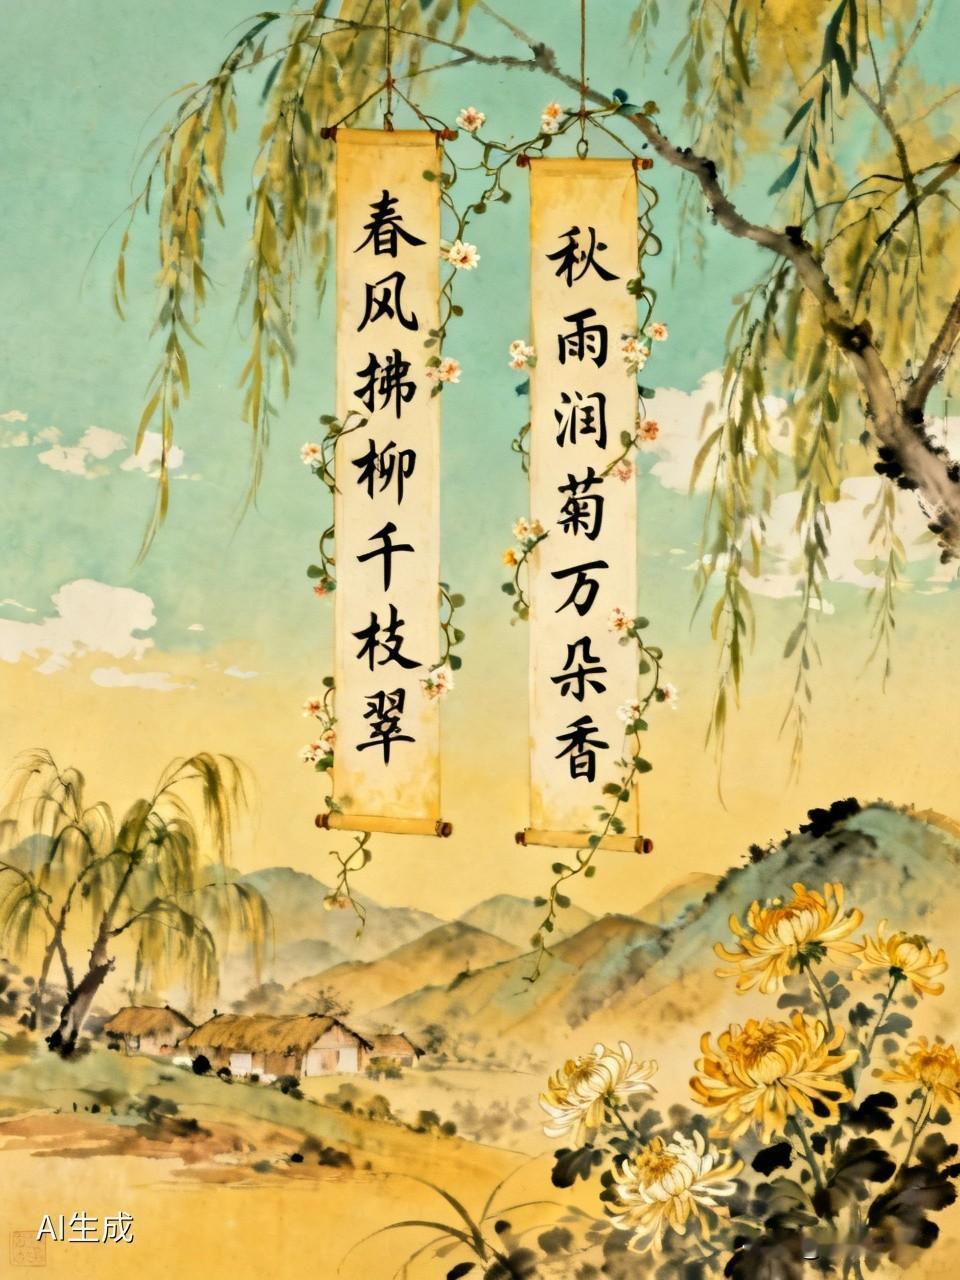 春风拂柳千枝翠
秋雨润菊万朵香
AI生成